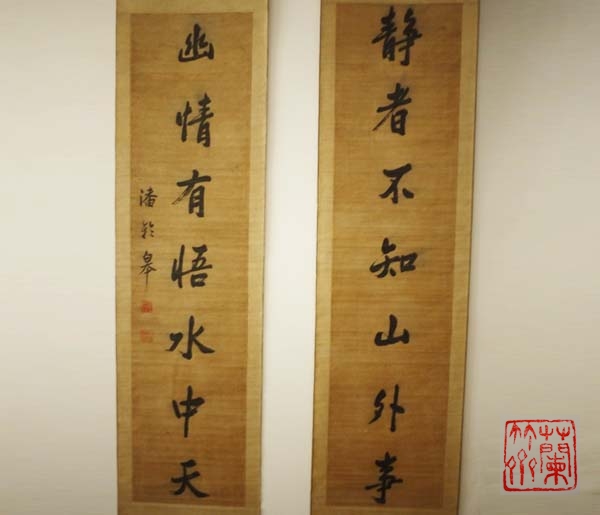 静者不知山外事
幽情有悟水中天
潘龄皋